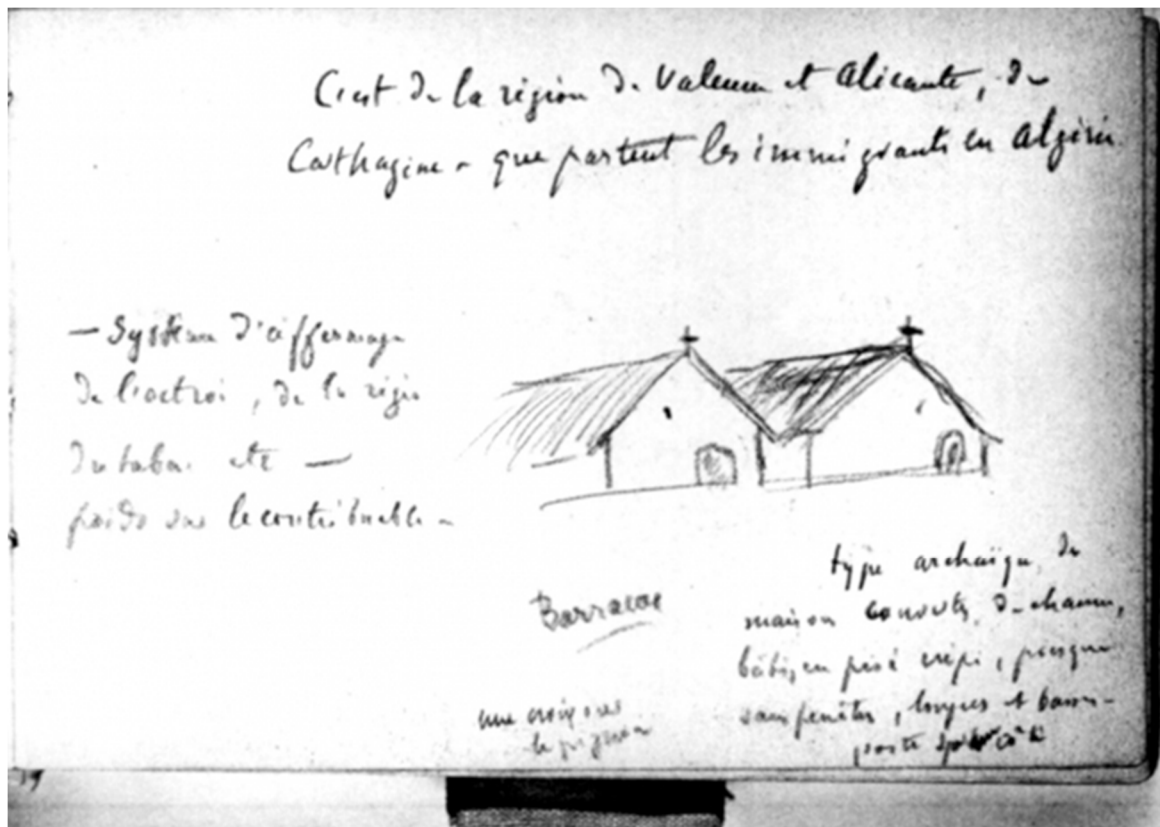 C'est de la région de Valence et Alicante, de
Carthagène - que partent les immigrants en Algérie.
— Système d'affermage
de l'octroi, de la régie
du tabac etc —
poids sur le contribuable -
Barracas
une croix sur
le pignon
type archaïque de
maison couverte de chaume,
bâties en pisé crépi, presque
sans fenêtres, longues et basses -
porte
19